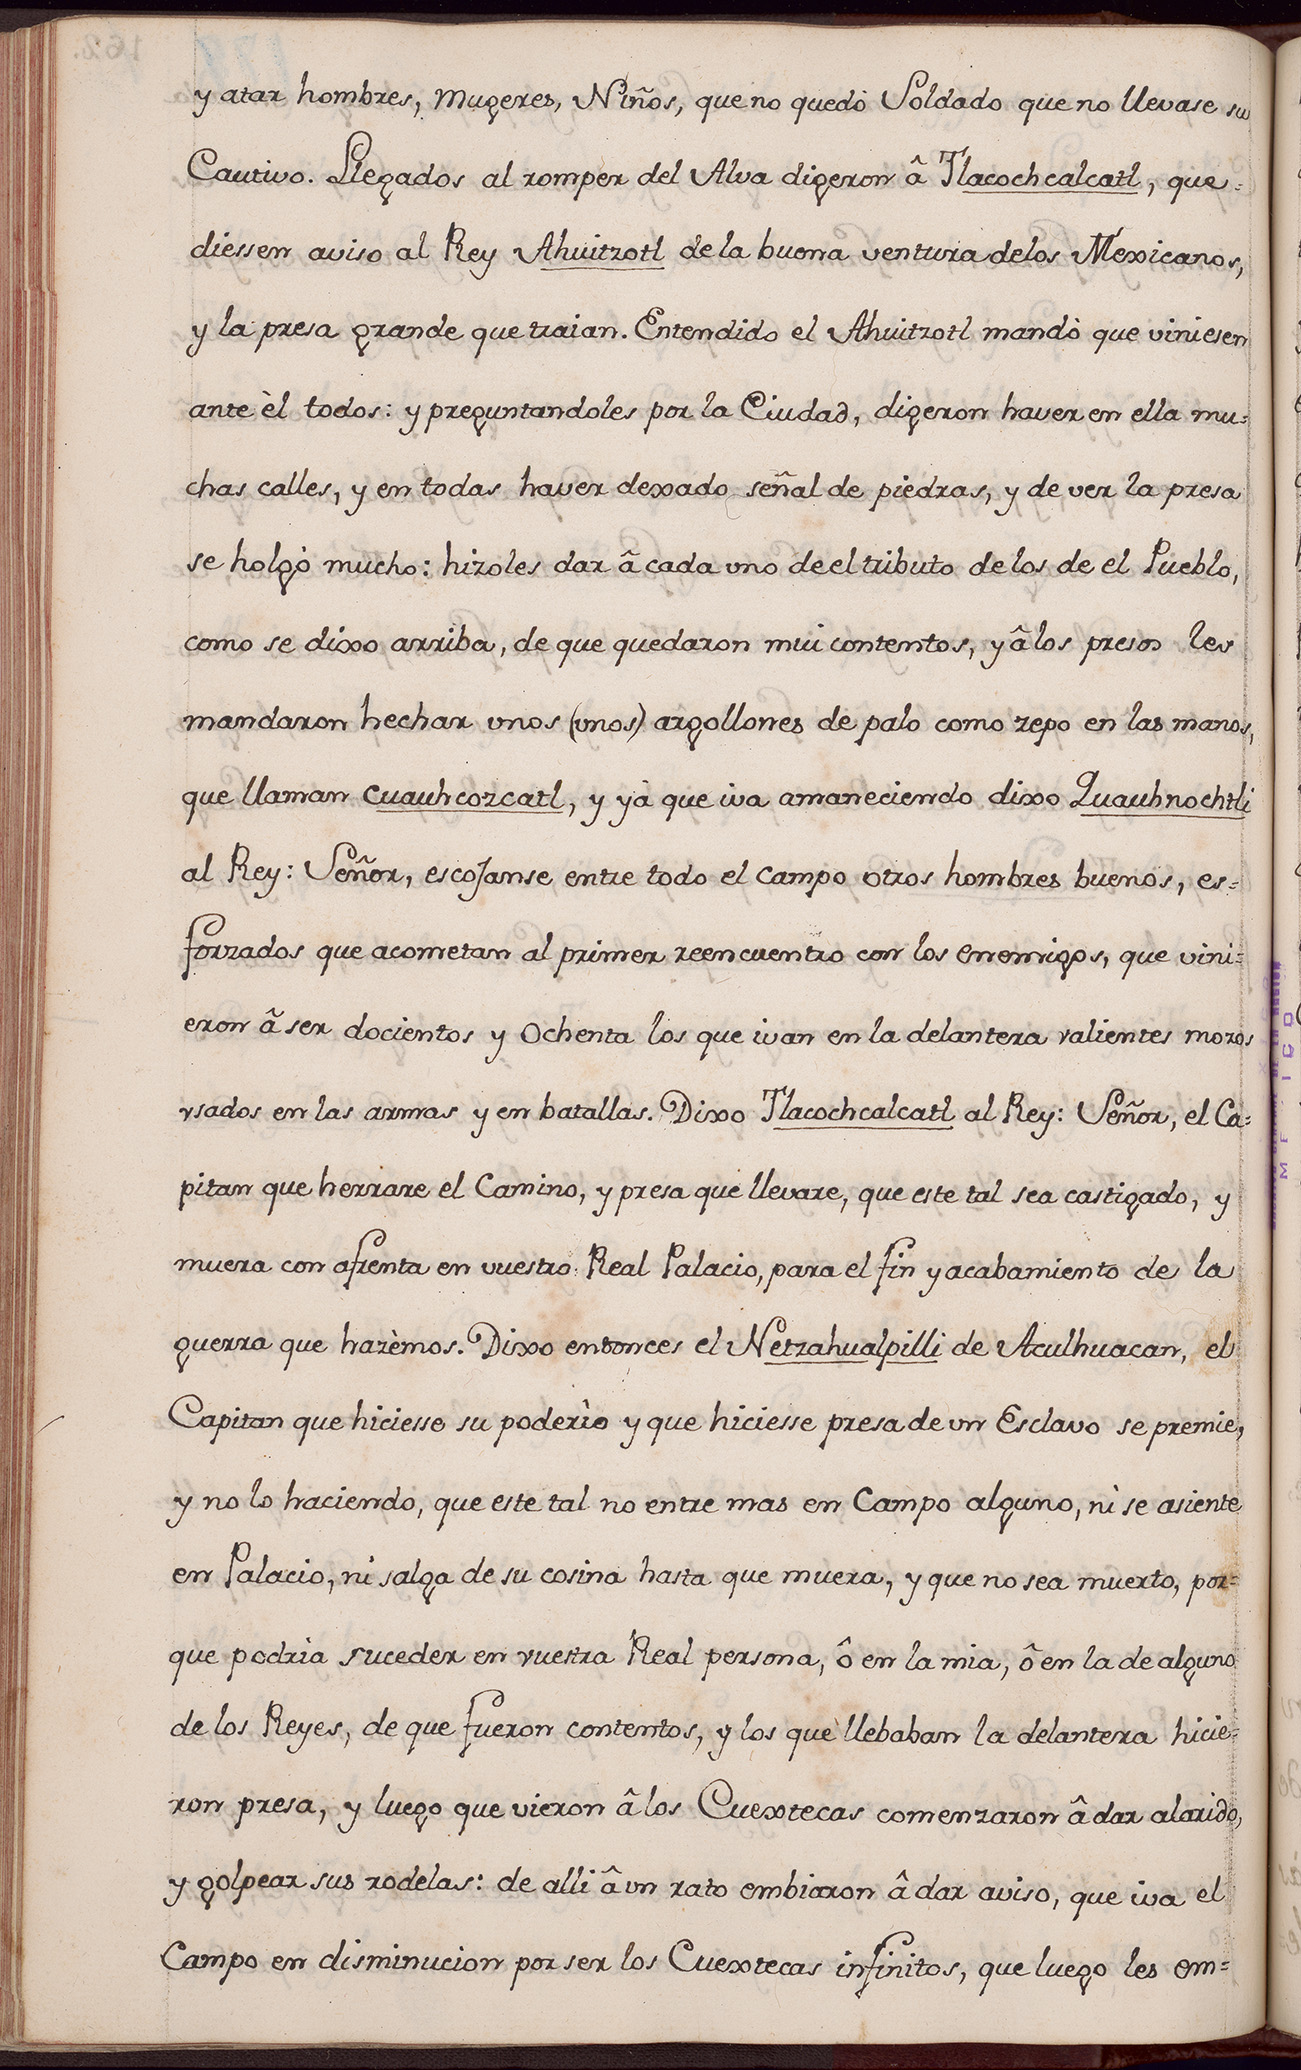 y atar hombres, Mugeres, Niños, que no quedò Soldado que no llevase su
Cautivo. Llegados al romper del Alva digeron â Tlacochcalcatl, que=
diessen aviso al Rey Ahuitzotl de la buena ventura delos Mexicanos,
y la presa grande que traian. Entendido el Ahuitzotl mandò que viniesen
ante èl todos: y preguntandoles por la Ciudad, digeron haver en ella mu=
chas calles, y en todas haver dexado señal de piedras, y de ver la presa
se holgò mucho: hizoles dar â cada uno de el tributo de los de el Pueblo,
como se dixo arriba, de que quedaron mui contentos, y â los presos les
mandaron hechar vnos (vnos) argollones de palo como zepo en las manos,
que llaman cuauhcozcatl, y yà que iva amaneciendo dixo Quauhnochtli
al Rey: Señor, escoJanse entre todo el campo otros hombres buenos, es=
forzados que acometan al primer reencuentro con los enemigos, que vini=
eron â ser docientos y ochenta los que ivan en la delantera valientes mozos
vsados en las armas y en batallas. Dixo Tlacochcalcatl al Rey: Señor, el Ca=
pitan que herrare el Camino, y presa que llevare, que este tal sea castigado, y
muera con afrenta en vuestro Real Palacio, para el fin y acabamiento de la
guerra que hazèmos. Dixo entonces el Netzahualpilli de Aculhuacan, el
Capitan que hiciesse su poderìo y que hiciesse presa de vn Esclavo se premie,
y no lo haciendo, que este tal no entre mas en Campo alguno, ni se asiente
en Palacio, ni salga de su cosina hasta que muera, y que no sea muerto, por=
que podrìa suceder en vuestra Real persona, ô en la mia, ô en la de alguno
de los Reyes, de que fueron contentos, y los que llebaban la delantera hicie=
ron presa, y luego que vieron â los Cuextecas comenzaron â dar alarido,
y golpear sus rodelas: de alli â vn rato embiaron â dar aviso, que iva el
Campo en disminucion por ser los Cuextecas infinitos, que luego les em=